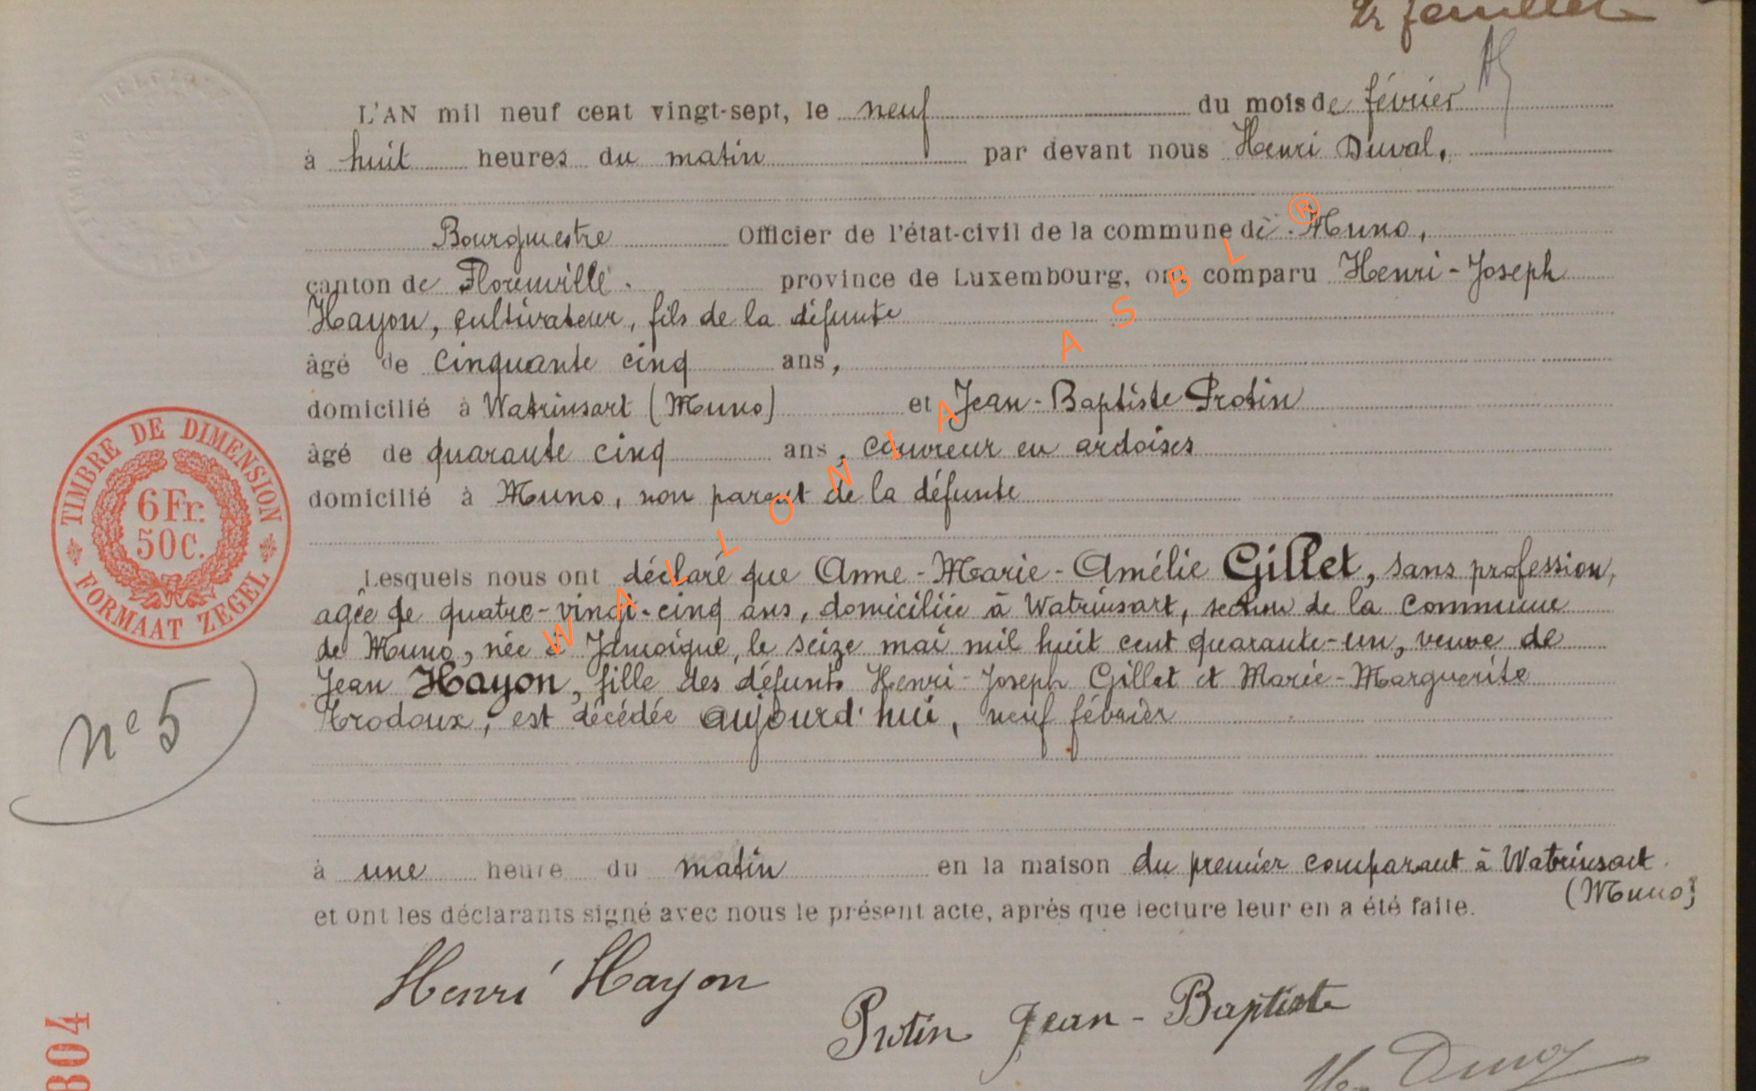 2e feuillet
L'AN mil neuf cent vingt-sept, le neuf du mois de février
à huit heures du matin par devant nous Henri Duval,
Bourgmestre Officier de l'état-civil de la commune de Muno,
canton de Florenville. province de Luxembourg, ont comparu Henri-Joseph
Hayon, cultivateur, fils de la défunte
âgé de cinquante cinq ans,
domicilié à Watrinsart (Muno) et Jean-Baptiste Protin
âgé de quarante cinq ans, couvreur en ardoises
domicilié à Muno, non parent de la défunte
Lesquels nous ont déclaré que Anne-Marie-Amélie Gillet, sans profession,
agée de quatre-vingt-cinq ans, domiciliée à Watrinsart, section de la commune
de Muno, née à Jamoigne, le seize mai mil huit cent quarante-un, veuve de
Jean Hayon, fille des défunts Henri-Joseph Gillet et Marie-Marguerite
Trodoux, est décédée aujourd'hui, neuf février
à une heure du matin en la maison du premier comparant à Watrinsart
(Muno)
et ont les déclarants signé avec nous le présent acte, après que lecture leur en a été faite.
Henri Hayon
Protin Jean-Baptiste
TIMBRE DE DIMENSION
6 Fr.
50c.
FORMAAT ZEGEL
N° 5
304
WALLONIA ASBL ®